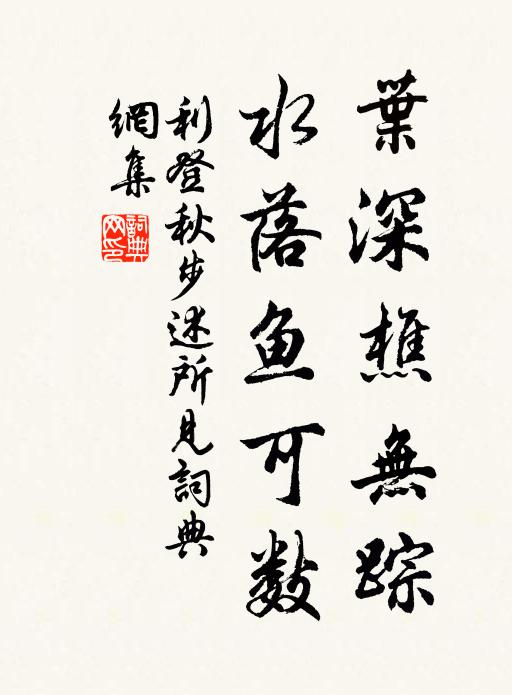 葉深樵無踪
水落鱼可数
利登秋步述所見詞典
網集
詞典網印